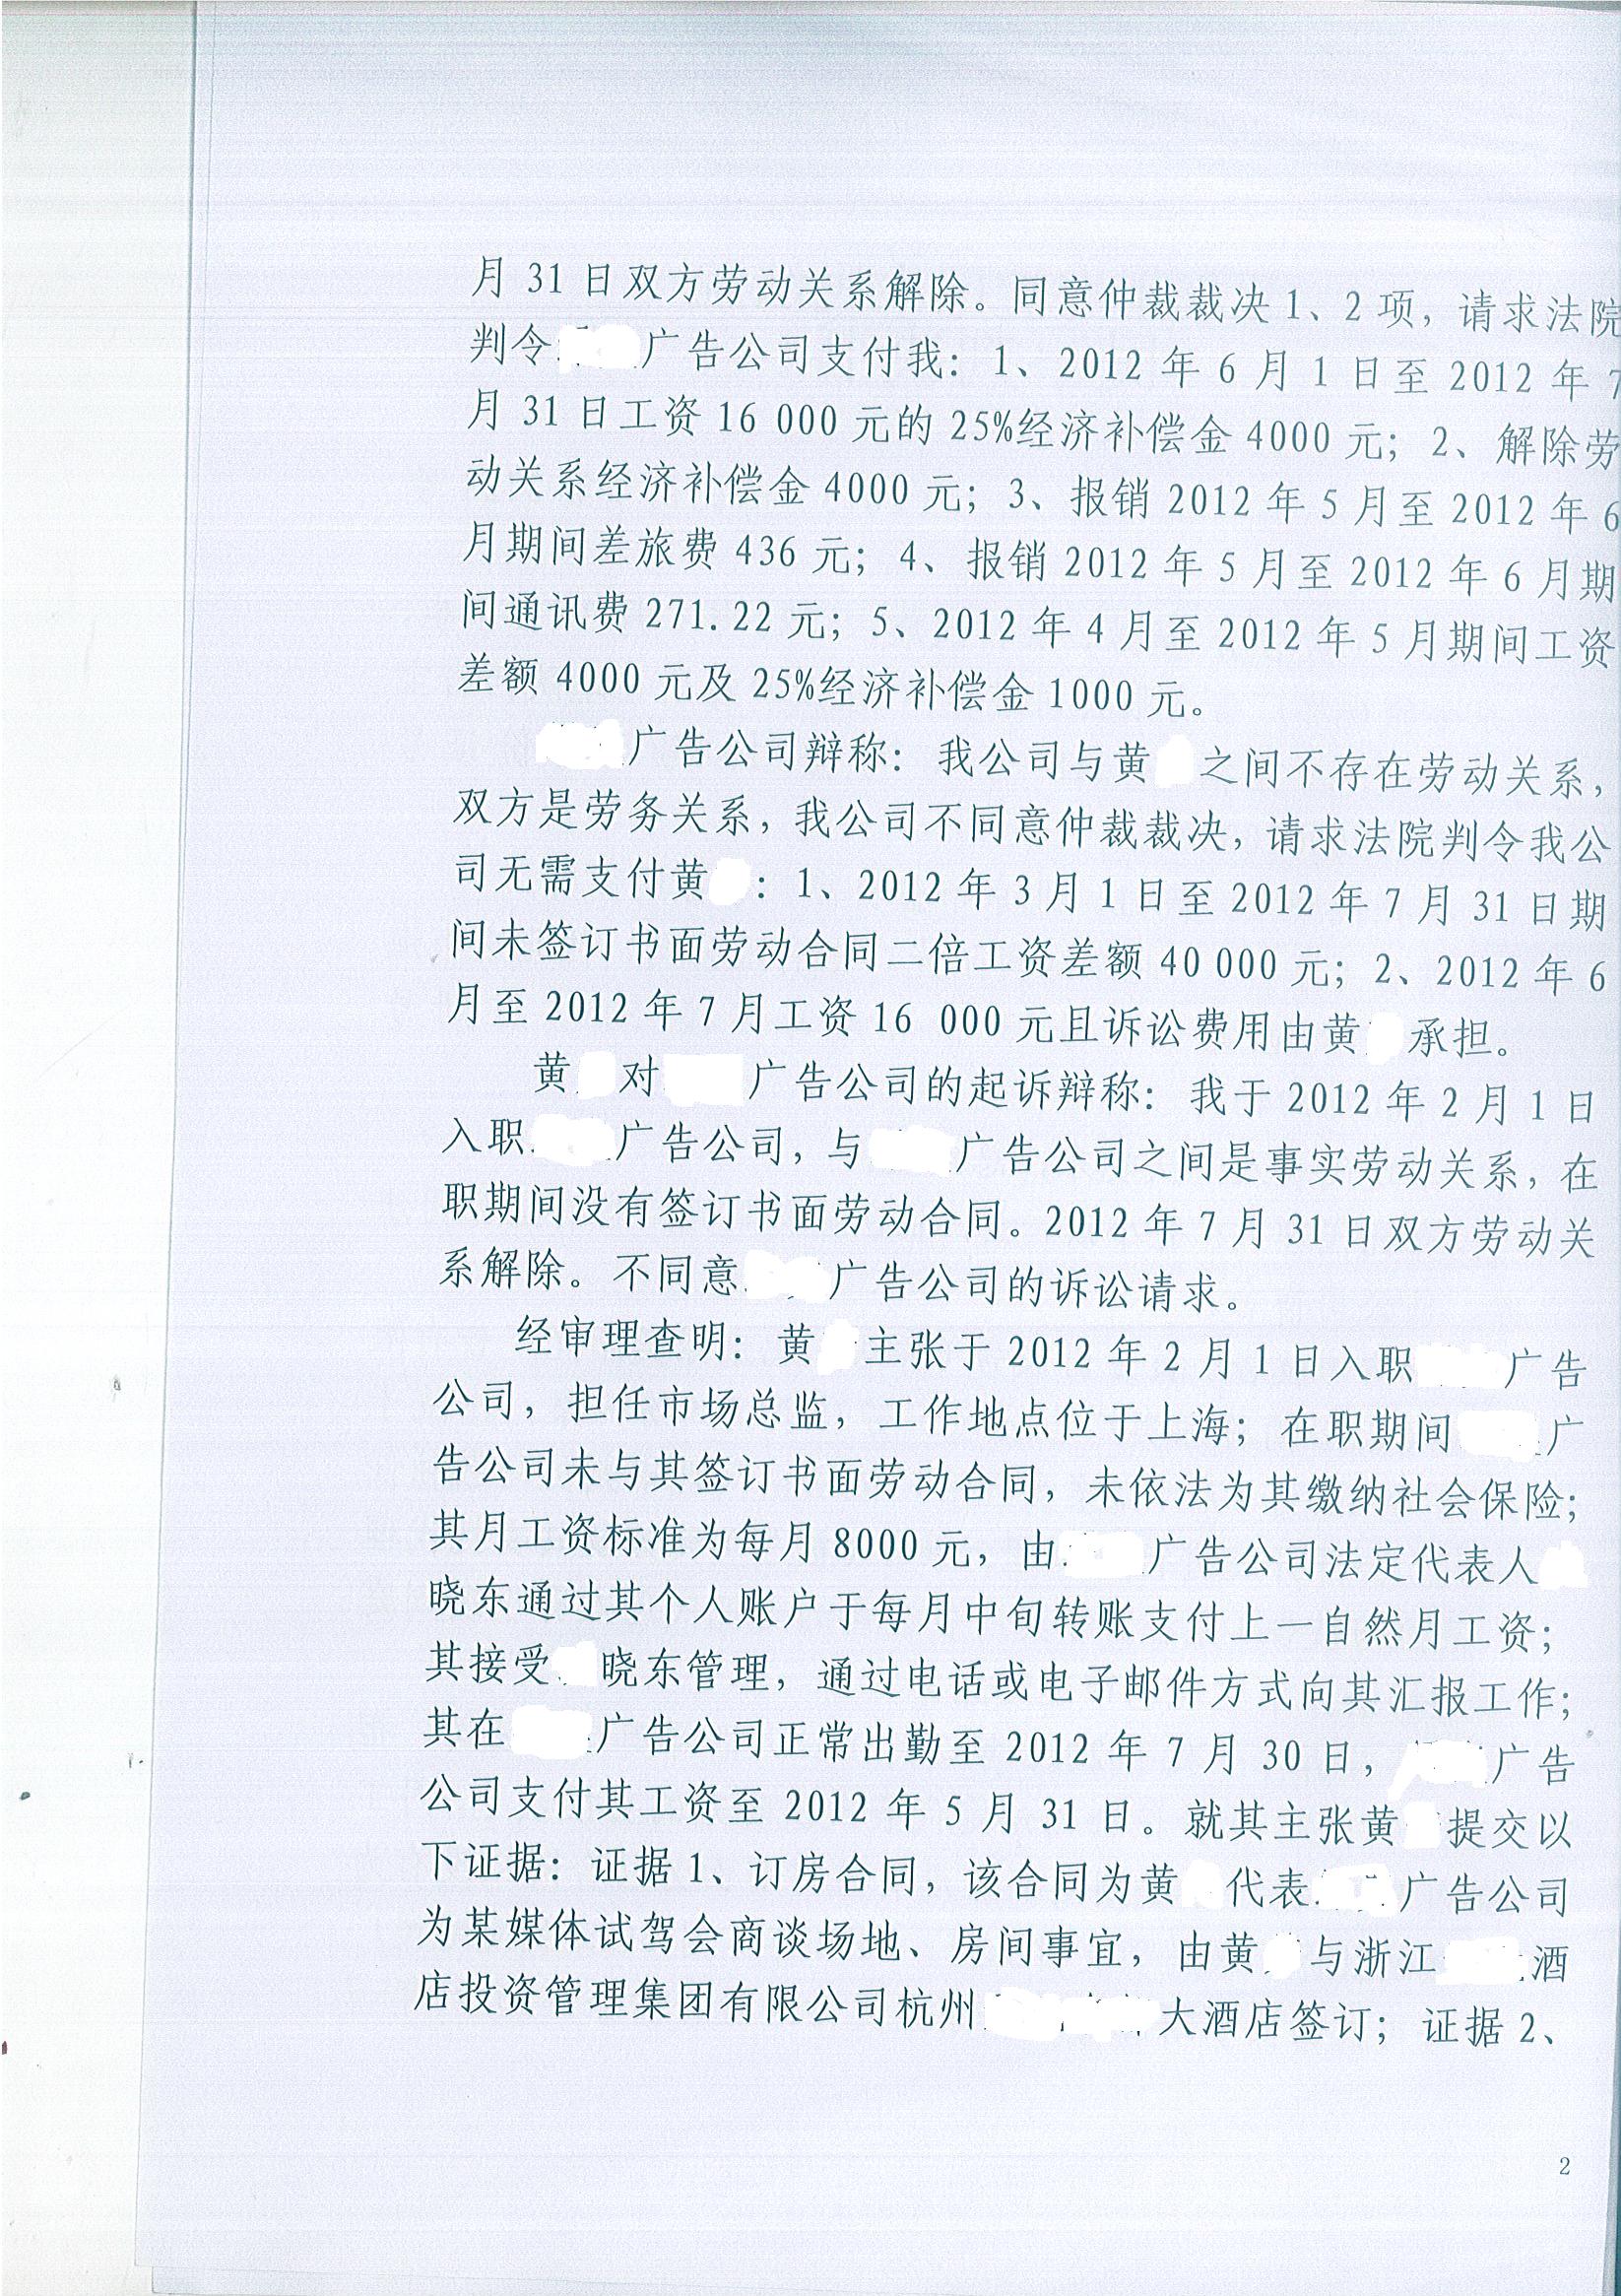 月 31 日双方劳动关系解除。同意仲裁裁决 1、2 项，请求法院
判令广告公司支付我：1、2012 年 6 月 1 日至 2012 年 7
月 31 日工资 16 000 元的 25%经济补偿金 4000 元；2、解除劳
动关系经济补偿金 4000 元；3、报销 2012 年 5 月至 2012 年 6
月期间差旅费 436 元；4、报销 2012 年 5 月至 2012 年 6 月期
间通讯费 271.22 元；5、2012 年 4 月至 2012 年 5 月期间工资
差额 4000 元及 25%经济补偿金 1000 元。
广告公司辩称：我公司与黄之间不存在劳动关系，
双方是劳务关系，我公司不同意仲裁裁决，请求法院判令我公
司无需支付黄：1、2012 年 3 月 1 日至 2012 年 7 月 31 日期
间未签订书面劳动合同二倍工资差额 40 000 元；2、2012 年 6
月至 2012 年 7 月工资 16 000 元且诉讼费用由黄承担。
黄对广告公司的起诉辩称：我于 2012 年 2 月 1 日
入职广告公司，与广告公司之间是事实劳动关系，在
职期间没有签订书面劳动合同。2012 年 7 月 31 日双方劳动关
系解除。不同意广告公司的诉讼请求。
经审理查明：黄主张于 2012 年 2 月 1 日入职广告
公司，担任市场总监，工作地点位于上海；在职期间广
告公司未与其签订书面劳动合同，未依法为其缴纳社会保险；
其月工资标准为每月 8000 元，由广告公司法定代表人
晓东通过其个人账户于每月中旬转账支付上一自然月工资；
其接受晓东管理，通过电话或电子邮件方式向其汇报工作；
其在广告公司正常出勤至 2012 年 7 月 30 日，广告
公司支付其工资至 2012 年 5 月 31 日。就其主张黄提交以
下证据：证据 1、订房合同，该合同为黄代表广告公司
为某媒体试驾会商谈场地、房间事宜，由黄与浙江酒
店投资管理集团有限公司杭州大酒店签订；证据 2、
2